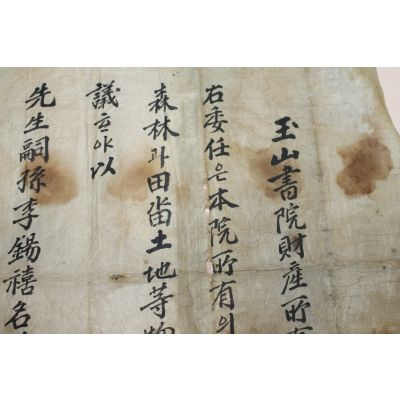 玉山書院財産所有
右委任은本院所有의
森林과田畓土地等物
議ᄒᆞ야以
先生嗣孫李錫禧名